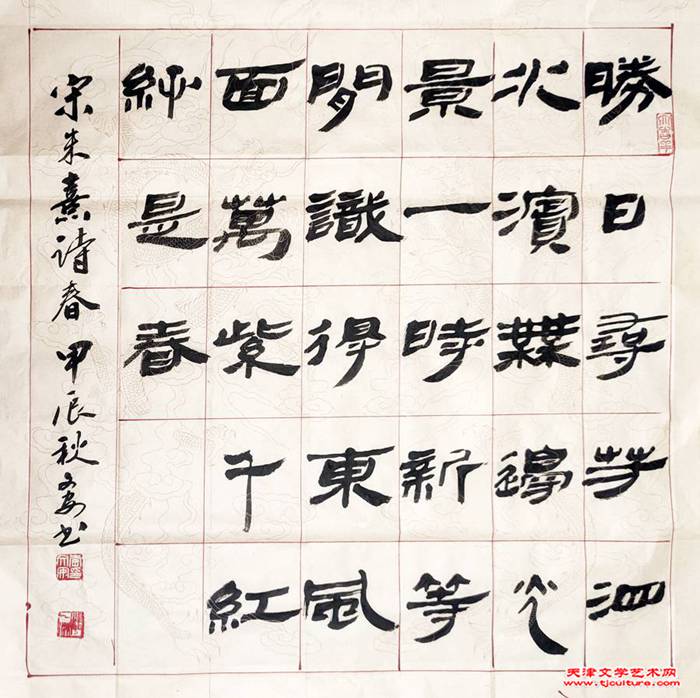 勝日尋芳泗
水濱無邊光
景一時新等
閒識得東風
面萬紫千紅
是春
宋朱熹诗春 甲辰秋 书
天津文学艺术网
www.tjculture.com